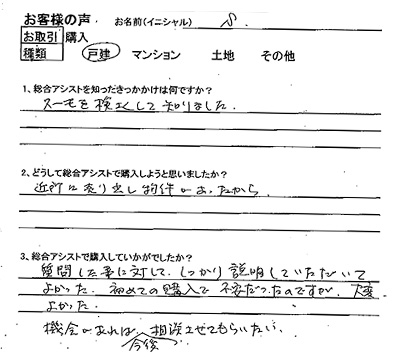 お客様の声　お名前（イニシャル）　S.
お取引　購入
種類　戸建　マンション　土地　その他
1、総合アシストを知ったきっかけは何ですか？
スーモを検索して知りました.
2、どうして総合アシストで購入しようと思いましたか？
近所に売り出し物件があったから
3、総合アシストで購入していかがでしたか？
質問した事に対して、しっかり説明していただいて
よかった. 初めての購入で不安だったのですが、大変
よかった.
機会があれば、相談させてもらいたい.
今後